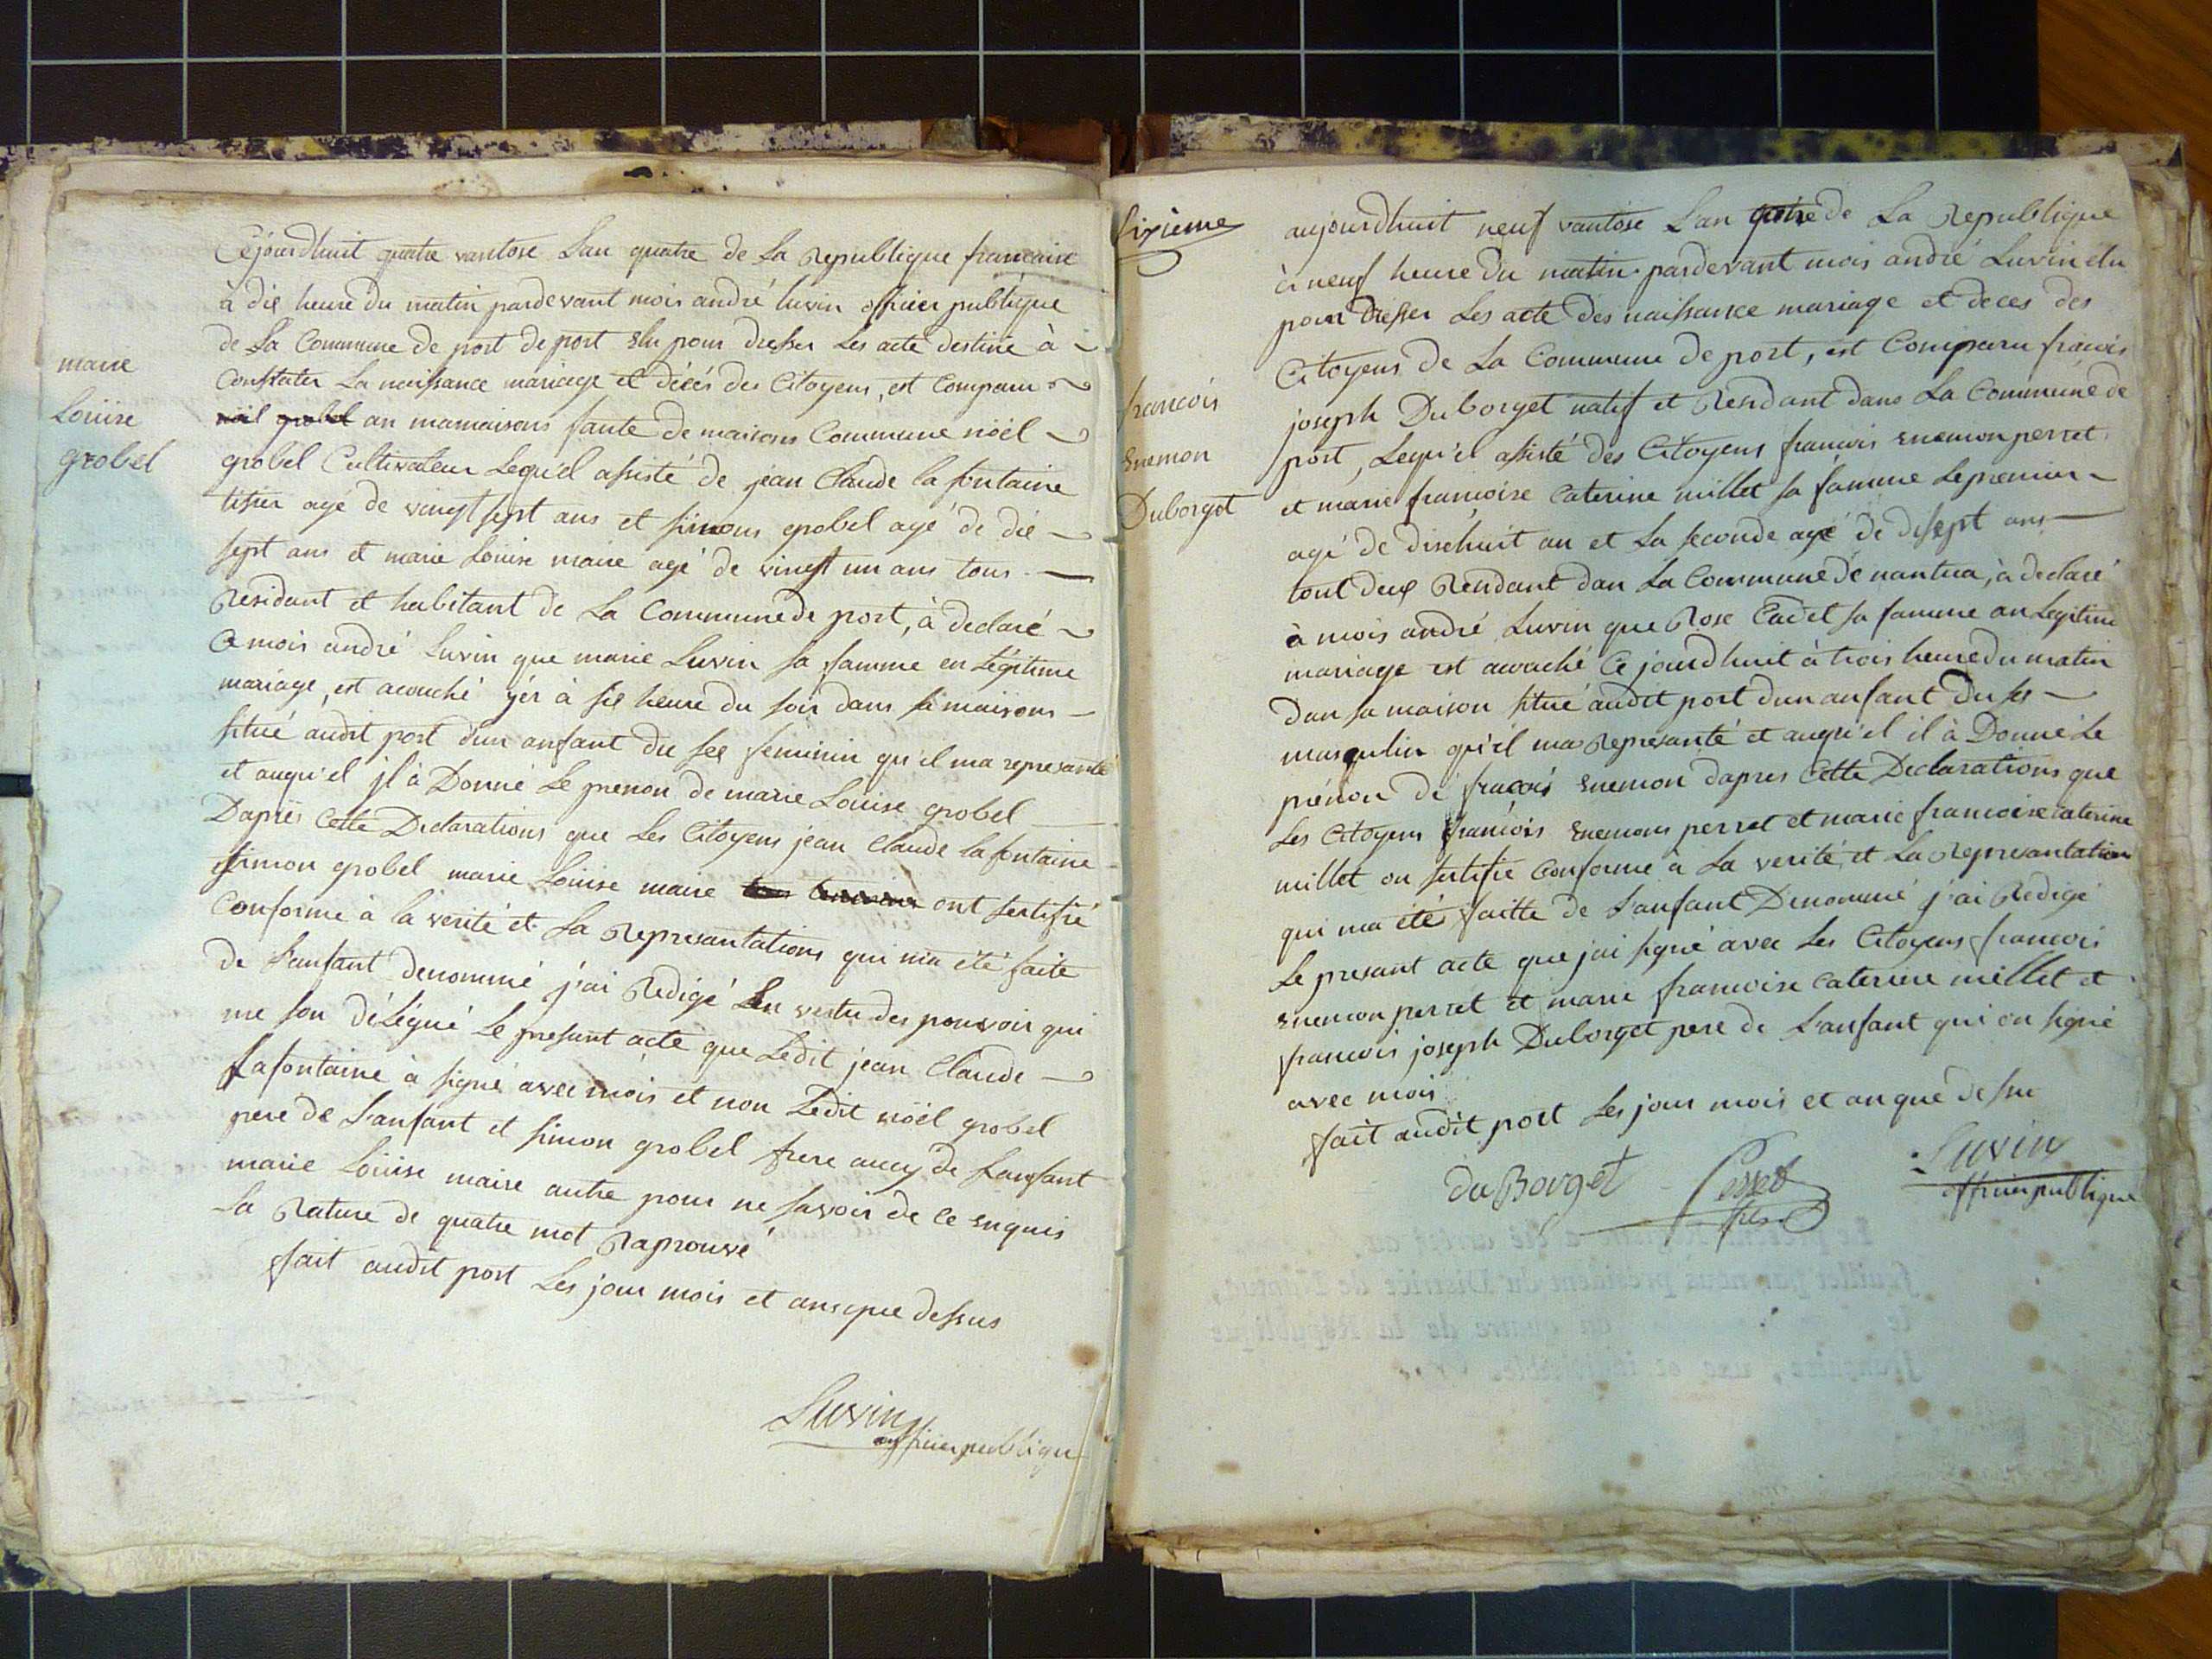 marie
Louise
grobel
Cejourdhuit quatre vantose Lan quatre de La Republique francaise
à die heure du matin pardevant mois andré luvin officier publique
de La Commune de port de port Elu pour dresser Les acte destiné à
Constater La naissance mariage et décés des Citoyens, est Comparu
noël grobel an mamaisons faute de maisons Commune noël
grobel Cultivateur Lequel assisté de jean Claude la fontaine
tisier agé de vingt sept ans et simons grobel agé de dié
sept ans et marie Louise maire agé de vingt un ans tous
Residant et habitant de La Commune de port, à declaré
a mois andré Luvin que marie Luvin sa famme en Légitime
mariage, est acouché yér à sie heure du soir dans sa maisons
situé audit port dun anfant du see feminin qu'il ma represanté
et auqu'el jl à Donné Le prenon de marie Louise grobel
Daprés Cette Declarations que Les Citoyens jean Claude lafontaine
simon grobel marie Louise maire ont sertifié
Conforme à la verité et La Represantations qui ma été faite
de Lanfant denommé j'ai Redigé En vertu des pouvoir qui
me son déLégué Le presant acte que Ledit jean Claude
Lafontaine à signé avec mois et non Ledit noël grobel
pere de Lanfant et simon grobel frere aucy de Lanfant
marie Louise maire autre pour ne savoir de ce Enquis
La Rature de quatre mot Raprouvé
fait audit port Les jour mois et ansque dessus
Luvin
officier publique
sixieme
francois
Enemon
Duborget
aujourdhuit neuf vantose Lan qutre de La Republique
à neuf heure du matin pardevant mois andré Luvin élu
pour dresser Les acte des naissance mariage et deces des
Citoyens de La Commune de port, est Comparu fracois
joseph Duborget natif et Residant dans La Commune de
port, Lequ'el assisté des Citoyens francois Enemon perret
et marie francoise Caterine millet sa famme Le premier
agé de disehuit an et La seconde agé de disept ans
tout deux Rendant dan La Commune de nantua, à declaré
à mois andré Luvin que Rose Cadet sa famme an Legitime
mariage est acouché Ce jourdhuit à trois heure du matin
dan sa maison situé audit port dun anfant du ses
masqulin qu'el ma Represanté et auqu'el il à Donné Le
prénon de fracois Enemon dapres Cette Declarations que
Les Citoyens francois Enemons perret et marie francoise caterine
millet on sertifie Conforme à La verité et La Represantation
qui ma été faitte de Lanfant Denommé j'ai Redigé
Le presant acte que jai signé avec Les Citoyens francois
Enemon perret et marie francoise Caterine millet et
francois joseph Duborget pere de Lanfant qui on signé
avec mois
fait audit port Les jour mois et an que desu
duBorget
Perret
fils
Luvin
officier publique